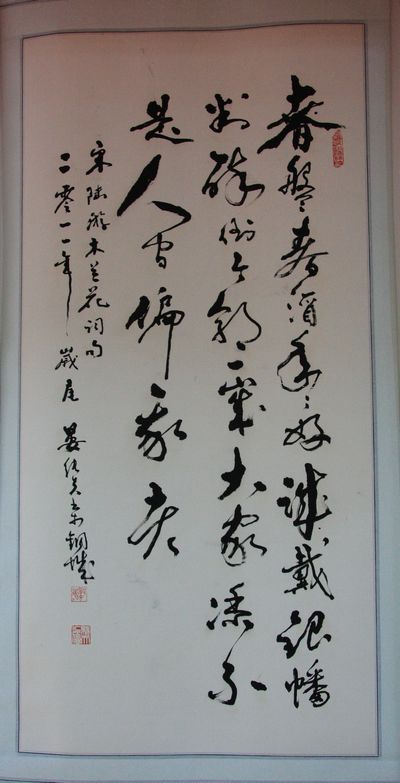 春盤春酒年〻好試戴銀幡
判醉倒今朝一歲大家添不
是人间偏我老
宋陆游木兰花词句
二零一一年歲尾